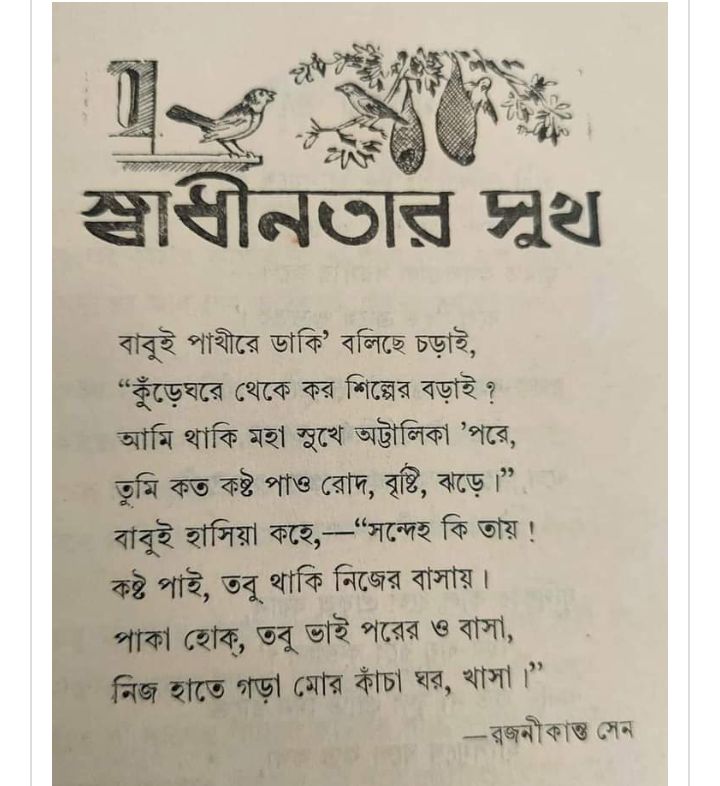 স্বাধীনতার সুখ
বাবুই পাখীরে ডাকি’ বলিছে চড়াই,
“কুঁড়েঘরে থেকে কর শিল্পের বড়াই ?
আমি থাকি মহা সুখে অট্টালিকা ’পরে,
তুমি কত কষ্ট পাও রোদ, বৃষ্টি, ঝড়ে।”
বাবুই হাসিয়া কহে,—“সন্দেহ কি তায় !
কষ্ট পাই, তবু থাকি নিজের বাসায়।
পাকা হোক্, তবু ভাই পরের ও বাসা,
নিজ হাতে গড়া মোর কাঁচা ঘর, খাসা।”
—রজনীকান্ত সেন